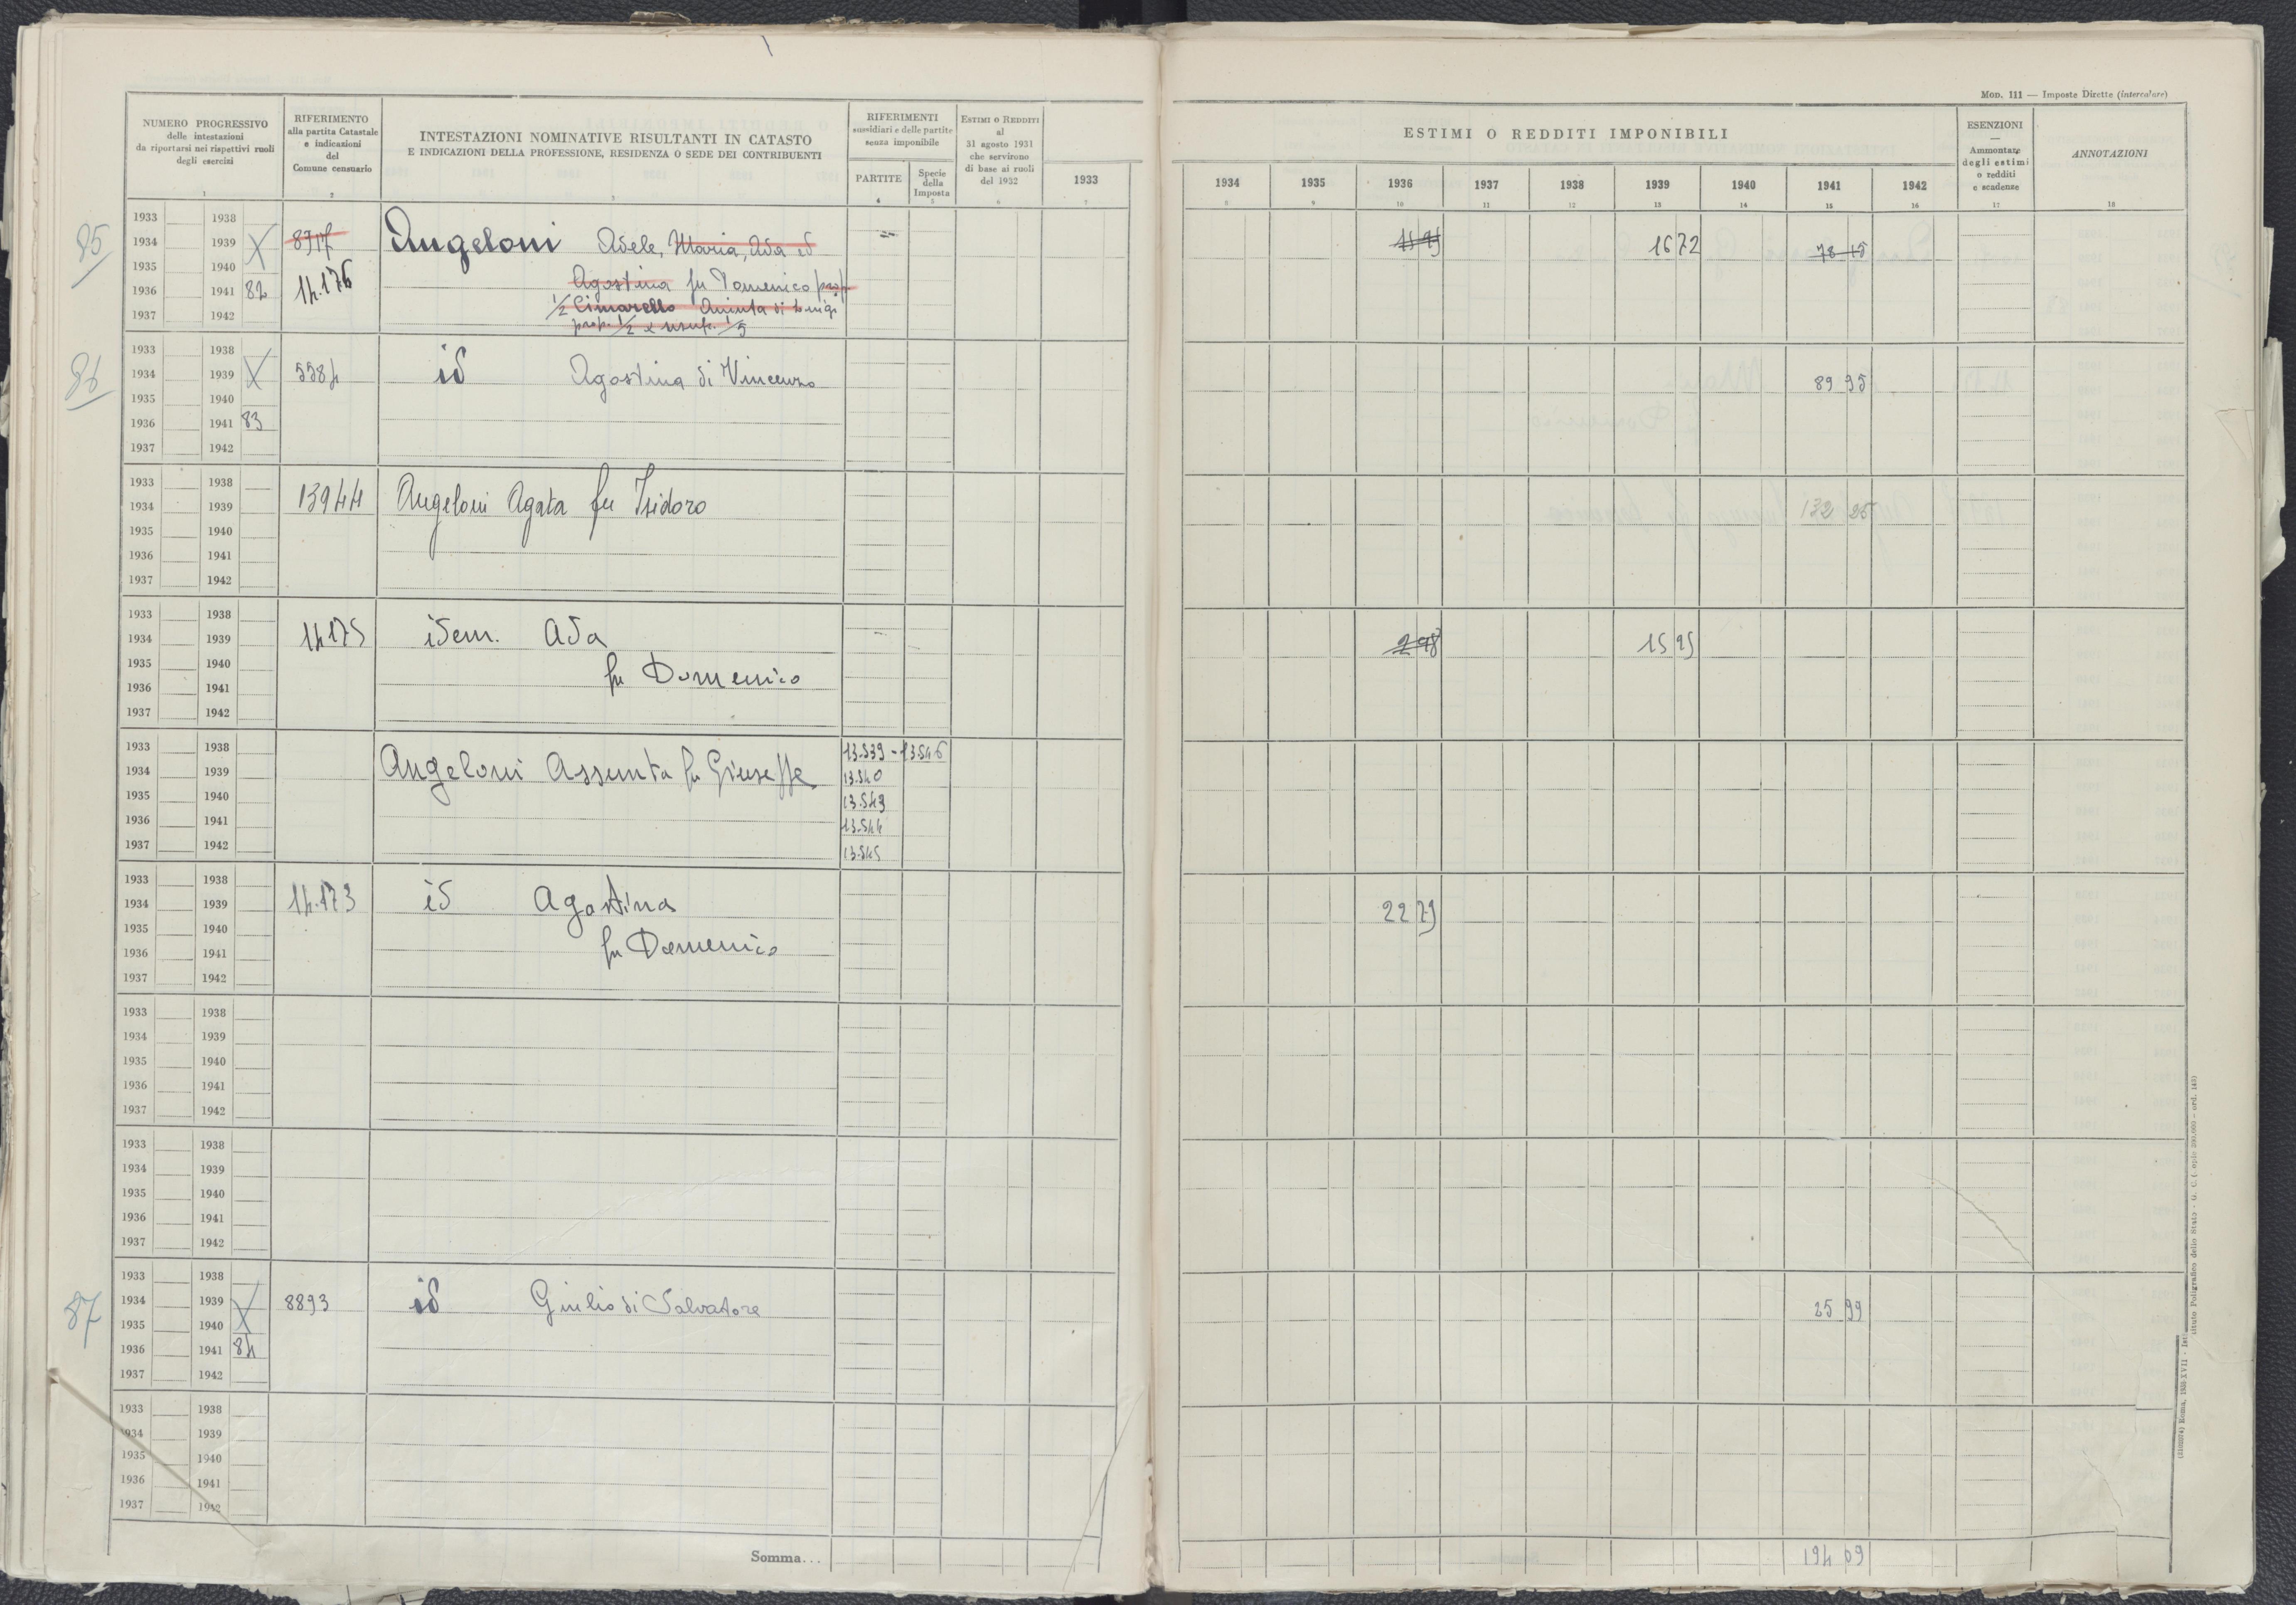 MOD. 111 — Imposte Dirette (intercalare)
NUMERO PROGRESSIVO
delle intestazioni
da riportarsi nei rispettivi ruoli
degli esercisi
1
RIFERIMENTO
alla partita Catastale
e indicazioni
del
Comune censuario
2
INTESTAZIONI NOMINATIVE RISULTANTI IN CATASTO
E INDICAZIONI DELLA PROFESSIONE, RESIDENZA O SEDE DEI CONTRIBUENTI
3
RIFERIMENTI
sussidiari e delle partite
senza imponibile
PARTITE
4
Specie
della
Imposta
5
ESTIMI O REDDITI
al
31 agosto 1931
che servirono
di base ai ruoli
del 1932
6
1933
7
ESTIMI O REDDITI IMPONIBILI
1934 1935 1936 1937 1938 1939 1940 1941 1942
8 9 10 11 12 13 14 15 16
ESENZIONI
—
Ammontare
degli estimi
o redditi
e scadenze
17
ANNOTAZIONI
18
85
1933 1938
1934 1939 8717 Angeloni Adele, Maria, Ada id 1672 78 15
1935 1940
1936 1941 82 14.176 Agostina fu Domenico prop
1937 1942 1/2 Cimarello Aminta di Luigi
prop. 1/2 e usuf. 1/3
86
1933 1938
1934 1939 5584 id Agostina di Vincenzo 89 95
1935 1940
1936 1941 83
1937 1942
1933 1938
1934 1939 13944 Angeloni Agata fu Isidoro 132 25
1935 1940
1936 1941
1937 1942
1933 1938
1934 1939 14175 idem. Ada 2 98 15 95
1935 1940 fu Domenico
1936 1941
1937 1942
1933 1938 13.539 - 13.546
1934 1939 Angeloni Assunta fu Giuseppe 13.540
1935 1940 13.543
1936 1941 13.544
1937 1942 13.545
1933 1938
1934 1939 14.173 id Agostina 22 79
1935 1940 fu Domenico
1936 1941
1937 1942
1933 1938
1934 1939
1935 1940
1936 1941
1937 1942
1933 1938
1934 1939
1935 1940
1936 1941
1937 1942
87
1933 1938
1934 1939 8893 id Giulio di Salvatore 25 99
1935 1940
1936 1941 84
1937 1942
1933 1938
1934 1939
1935 1940
1936 1941
1937 1942
Somma... 194 09